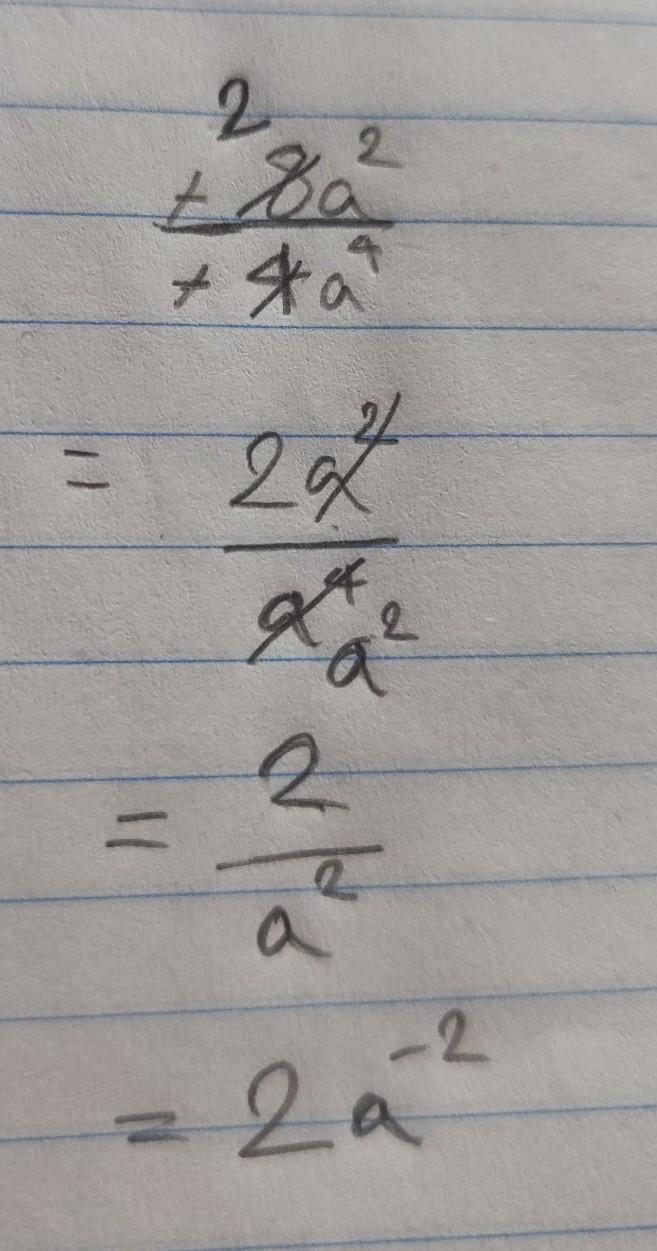 2
+ 8a²
+ 4a⁴
= 2a²
a⁴ a²
= 2
a²
= 2a⁻²